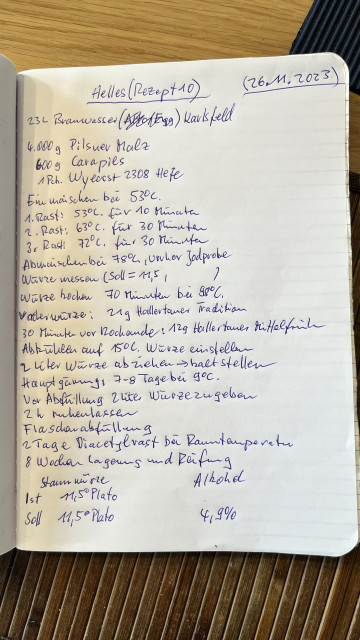 Helles (Rezept 10) (26.11.2023)
23L Brauwasser ( ) Karlsfeld
4.000g Pilsner Malz
600g Carapils
1 Pck. Wyeast 2308 Hefe
Einmaischen bei 53°C.
1. Rast: 53°C. für 10 Minuten
2. Rast: 63°C. für 30 Minuten
3. Rast: 72°C. für 30 Minuten
Abmaischen bei 78°C, vorher Jodprobe
Würze messen (Soll = 11,5, )
Würze kochen 70 Minuten bei 98°C.
Vorderwürze: 21g Hallertauer Tradition
30 Minuten vor Kochende: 12g Hallertauer Mittelfrüh
Abkühlen auf 15°C. Würze einstellen
2 Liter Würze abziehen → kalt stellen
Hauptgärung: 7-8 Tage bei 9°C.
Vor Abfüllung 2 Liter Würze zugeben
2h ruhen lassen
Flaschenabfüllung
2 Tage Diacetylrast bei Raumtemperatur
8 Wochen Lagerung und Reifung
Stammwürze Alkohol
Ist 11,5° Plato
Soll 11,5° Plato 4,9%